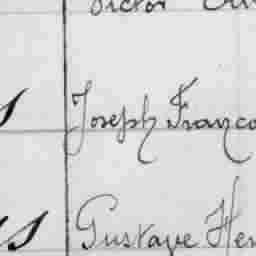 Victor
Joseph Franço
Gustave Hen